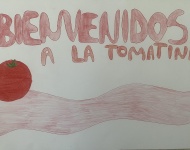 BIENVENIDOS
A LA TOMATINA